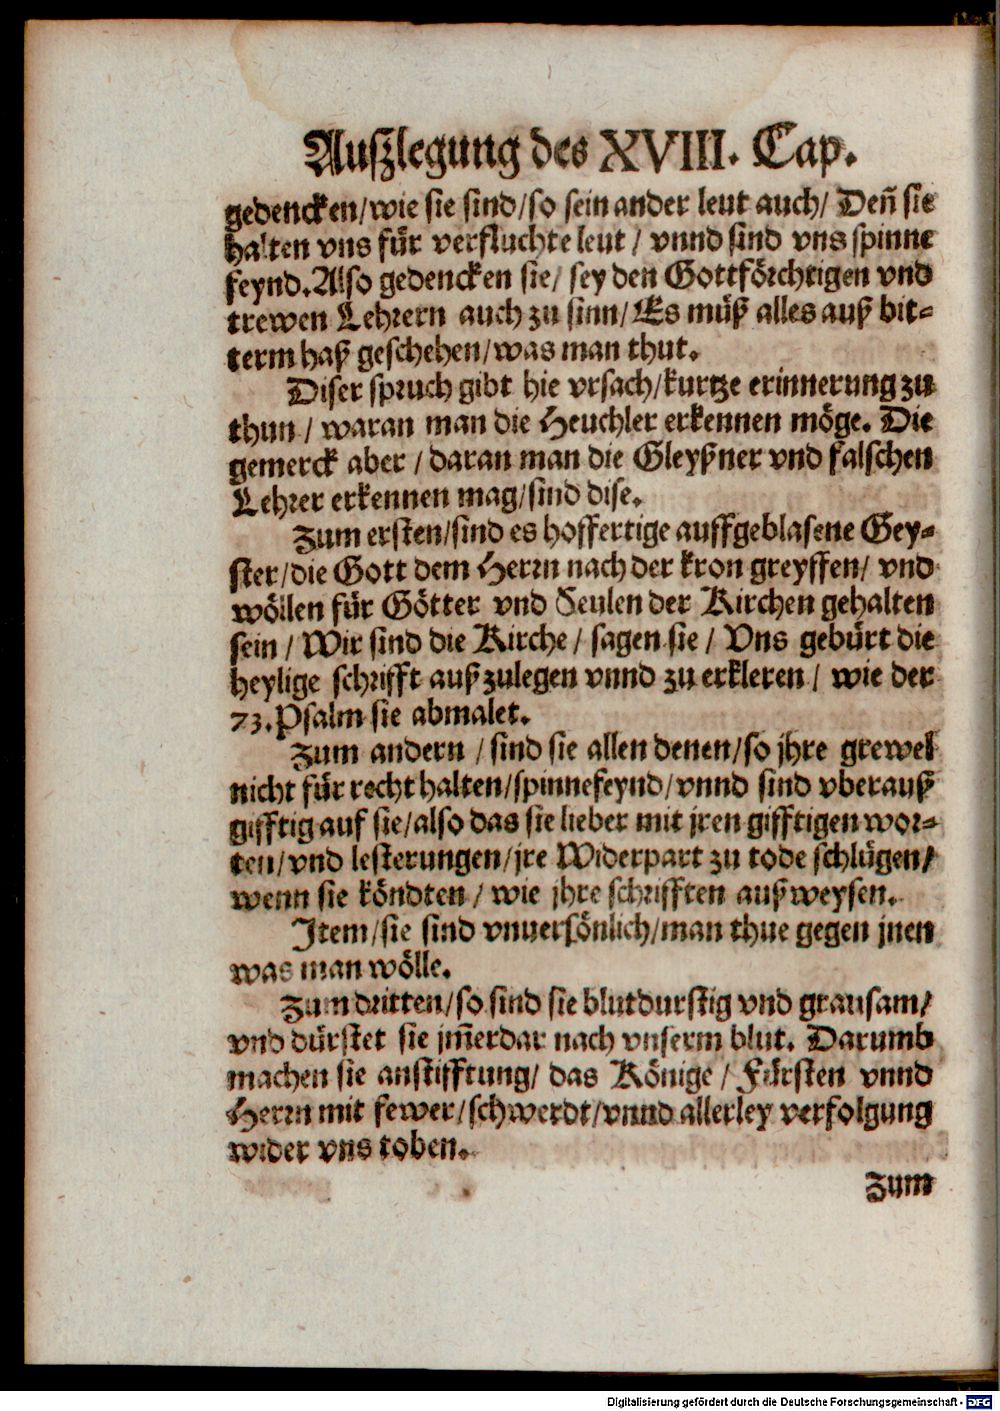 Auszlegung des XVIII. Cap.
gedencken/wie sie sind/so sein ander leut auch/ Deñ sie
halten vns für verfluchte leut / vnnd sind vns spinne
feynd. Also gedencken sie/ sey den Gottförchtigen vnd
trewen Lehrern auch zu sinn/ Es müß alles auß bit-
term haß geschehen/was man thut.
Diser spruch gibt hie vrsach/kurtze erinnerung zu
thun / waran man die Heuchler erkennen möge. Die
gemerck aber / daran man die Gleyßner vnd falschen
Lehrer erkennen mag/sind dise.
Zum ersten/sind es hoffertige auffgeblasene Gey-
ster/die Gott dem Herrn nach der kron greyffen/ vnd
wöllen für Götter vnd Seulen der Kirchen gehalten
sein / Wir sind die Kirche / sagen sie / Vns gebürt die
heylige schrifft auß zulegen vnnd zu erkleren / wie der
73. Psalm sie abmalet.
Zum andern / sind sie allen denen/so jhre grewel
nicht für recht halten/spinnefeynd/vnnd sind vberauß
gifftig auf sie/also das sie lieber mit jren gifftigen wor-
ten/vnd lesterungen/jre Widerpart zu tode schlügen/
wenn sie köndten / wie jhre schrifften auß weysen.
Item/sie sind vnuersönlich/man thue gegen jnen
was man wölle.
Zum dritten/so sind sie blutdurstig vnd grausam/
vnd dürstet sie jm̃erdar nach vnserm blut. Darumb
machen sie anstifftung/ das Könige / Fürsten vnnd
Herrn mit fewer/schwerdt/vnnd allerley verfolgung
wider vns toben.
Zum
Digitalisierung gefördert durch die Deutsche Forschungsgemeinschaft - DFG